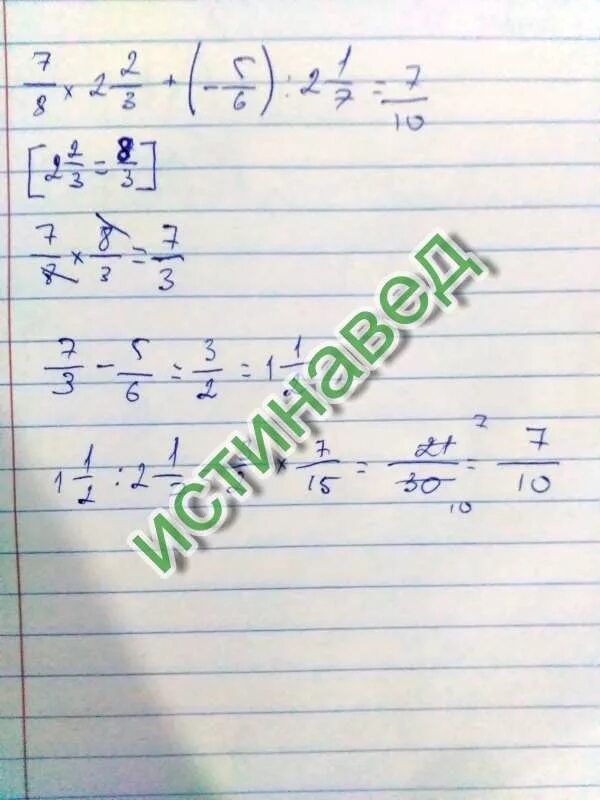 7/8 × 2 2/3 + (- 5/6) : 2 1/7 = 7/10
[2 2/3 = 8/3]
7/8 × 8/3 = 7/3
7/3 - 5/6 = 3/2 = 1 1/
1 1/2 : 2 1/ × 7/15 = 21/30 = 7/10
7
10
истинавед